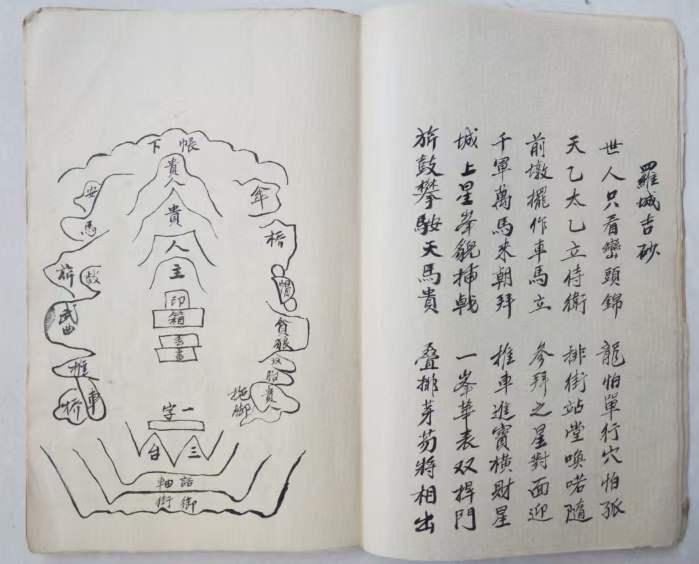 羅城吉砂
世人只看巒頭錦 龍怕單行穴怕孤
天乙太乙立侍衛 排街站堂喚喏隨
前墩擺作車馬立 參拜之星對面迎
千軍萬馬來朝拜 推車進寶橫財星
城上星峯貌插戟 一峯華表双捍門
旂鼓攀鞍天馬貴 叠排芽笏將相出
帳下
貴人
貴人
主
印
箱
傘
貪狼
胎貴人
安
馬
旂
武曲
推
車
一字
三台
誥軸
御街